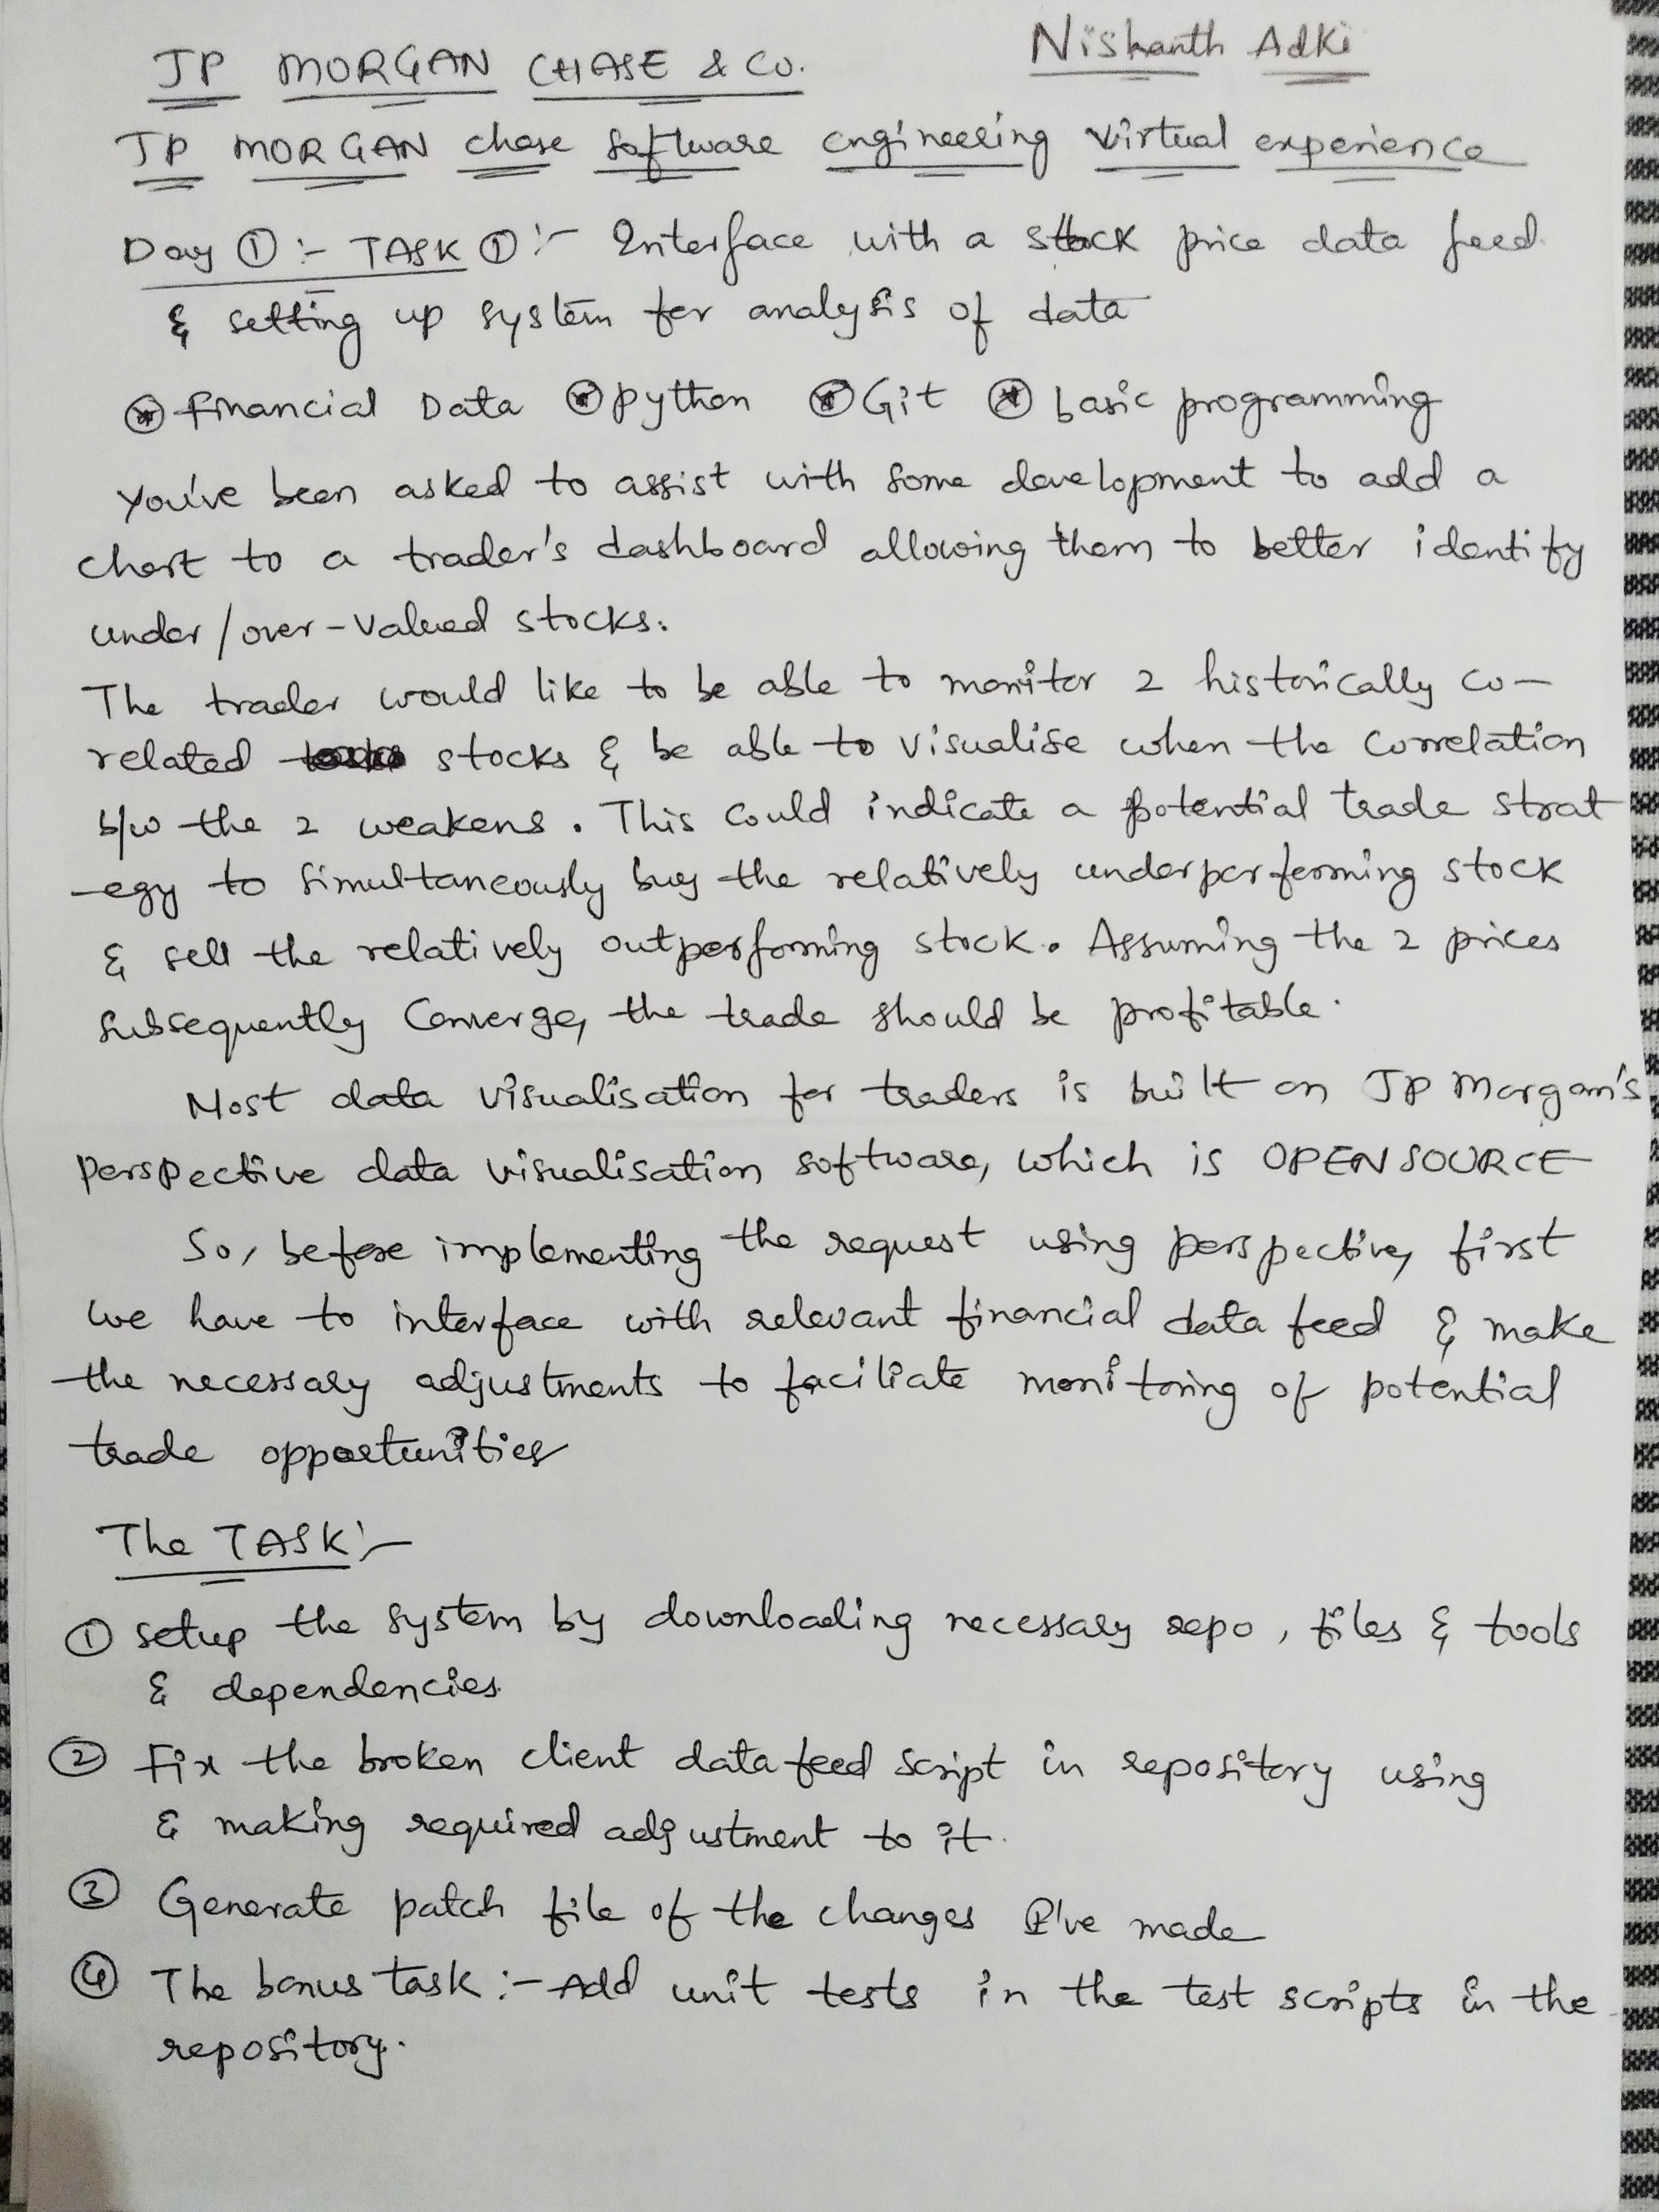 JP MORGAN CHASE & CO.
Nishanth Adki
JP MORGAN chase Software engineering virtual experience
Day ① :- TASK ① :- Interface with a stock price data feed
& setting up system for analysis of data
⊛ financial Data ⊛ python ⊛ Git ⊛ basic programming
You've been asked to assist with some development to add a
chart to a trader's dashboard allowing them to better identify
under/over-valued stocks.
The trader would like to be able to monitor 2 historically co-
related stocks & be able to visualise when the correlation
b/w the 2 weakens. This could indicate a potential trade strat
-egy to simultaneously buy the relatively underperforming stock
& sell the relatively outperforming stock. Assuming the 2 prices
subsequently converge, the trade should be profitable.
Most data visualisation for traders is built on JP Morgan's
perspective data visualisation software, which is OPEN SOURCE
So, before implementing the request using perspective, first
we have to interface with relevant financial data feed & make
the necessary adjustments to faciliate monitoring of potential
trade opportunities
The TASK :-
① setup the system by downloading necessary repo, files & tools
& dependencies.
② Fix the broken client datafeed script in repository using
& making required adjustment to it.
③ Generate patch file of the changes I've made
④ The bonus task :- Add unit tests in the test scripts in the
repository.